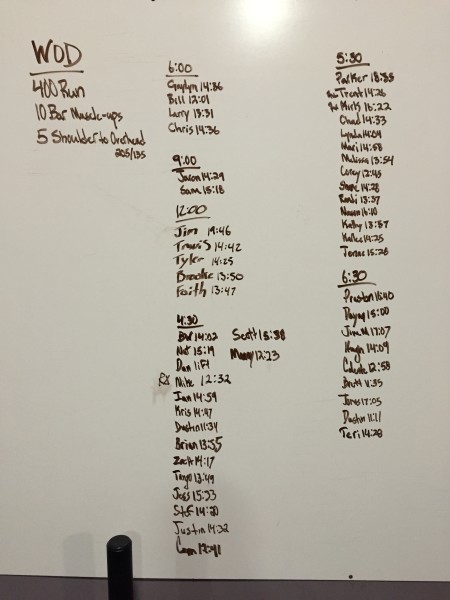 WOD
400 Run
10 Bar Muscle-ups
5 Shoulder to Overhead
205/135
6:00
Gaylyn 14:36
Bill 12:01
Larry 13:31
Chris 14:36
9:00
Jason 14:29
Sam 15:18
12:00
Jim 19:46
Travis 14:42
Tyler 14:25
Brooke 13:50
Faith 13:47
4:30
14:02
Nat 15:19
Dan
Rx Mike 12:32
Ian 14:59
Kris 14:47
Dustin 11:34
Brian 13:55
Zach 14:17
13:49
Joss 15:33
Stef 14:20
Justin 14:32
Cam 12:41
Scott 15:38
12:23
5:30
Parker 18:35
Trent 14:26
Kirk 16:22
Chad 14:33
Lynda 14:04
Mari 14:58
Melissa 13:54
Corey 12:45
14:28
13:37
16:10
Kathy 13:57
14:25
15:28
6:30
Preston
15:00
17:07
14:09
12:58
Brett 11:35
17:05
Dustin 11:11
Teri 14:28